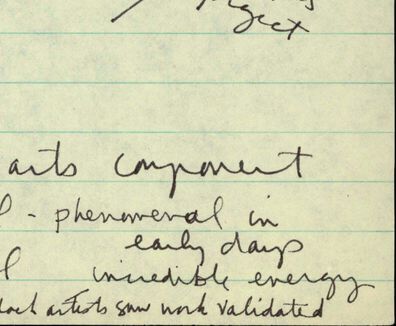 project
arts component
- phenomenal in
early days
incredible energy
artists saw work validated